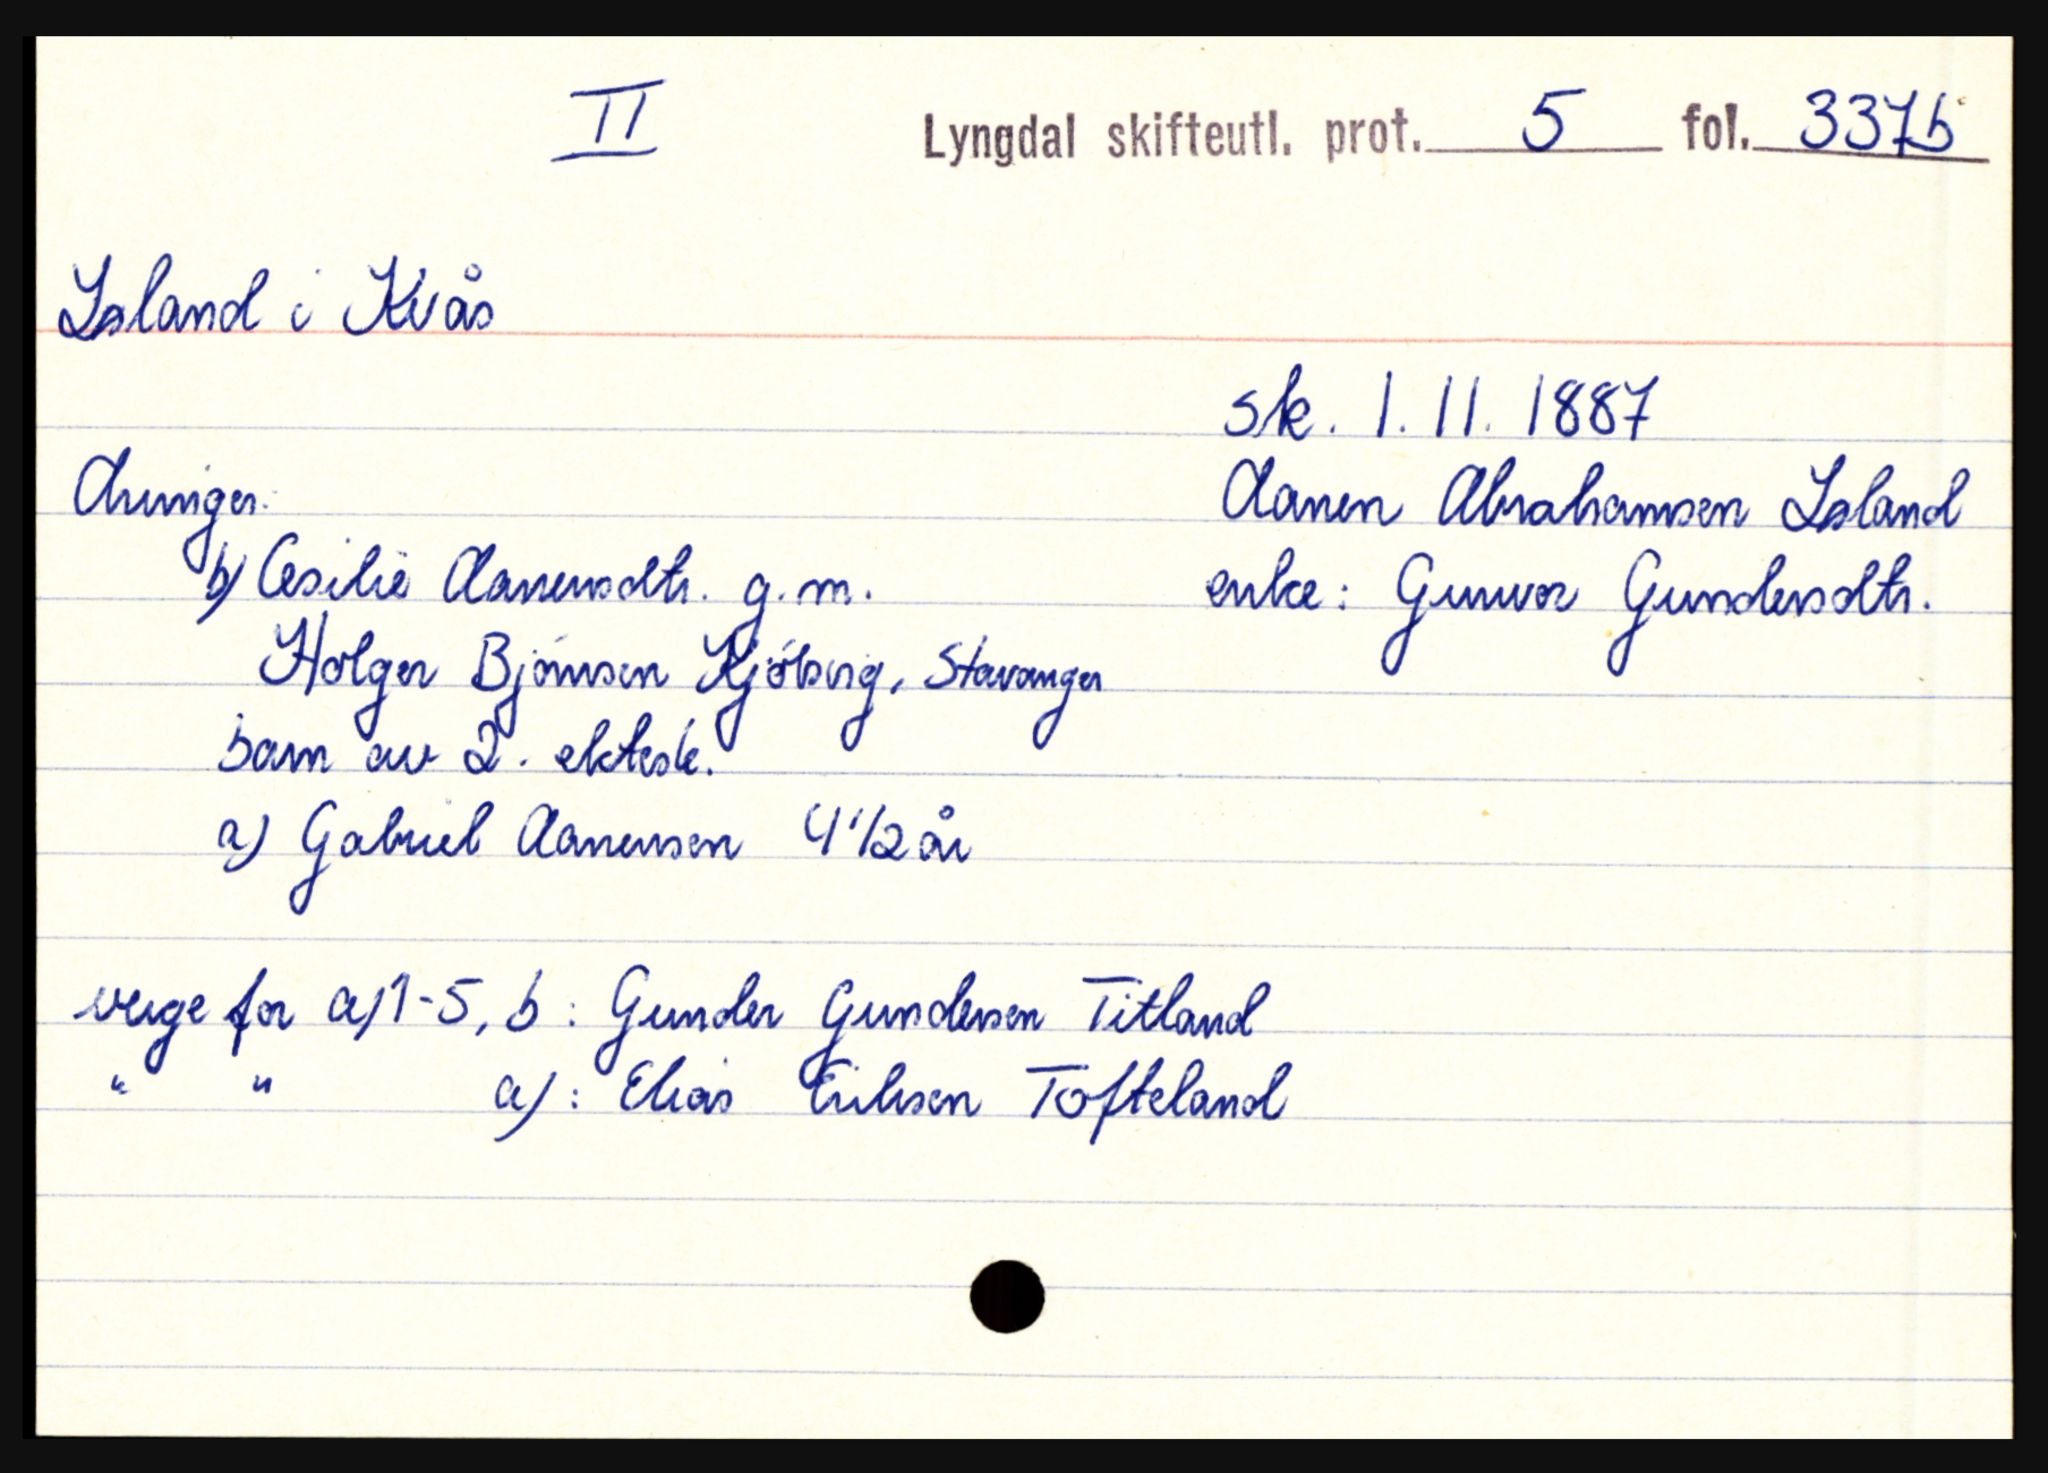 II Lyngdal skifteutl. prot. 5 fol. 337b
Island i Kvås
sk. 1.11.1887
Arvinger: Aanen Abrahamsen Island
b) Cesilie Aanensdtr. g.m. enke: Gunvor Gundersdtr.
Holger Bjørnsen Kjölsvig, Stavanger
barn av 2. ektesk.
a) Gabriel Aanensen 4 1/2 år
verge for a) 1-5, b : Gunder Gundersen Titland
" " a) : Elias Eriksen Tofteland